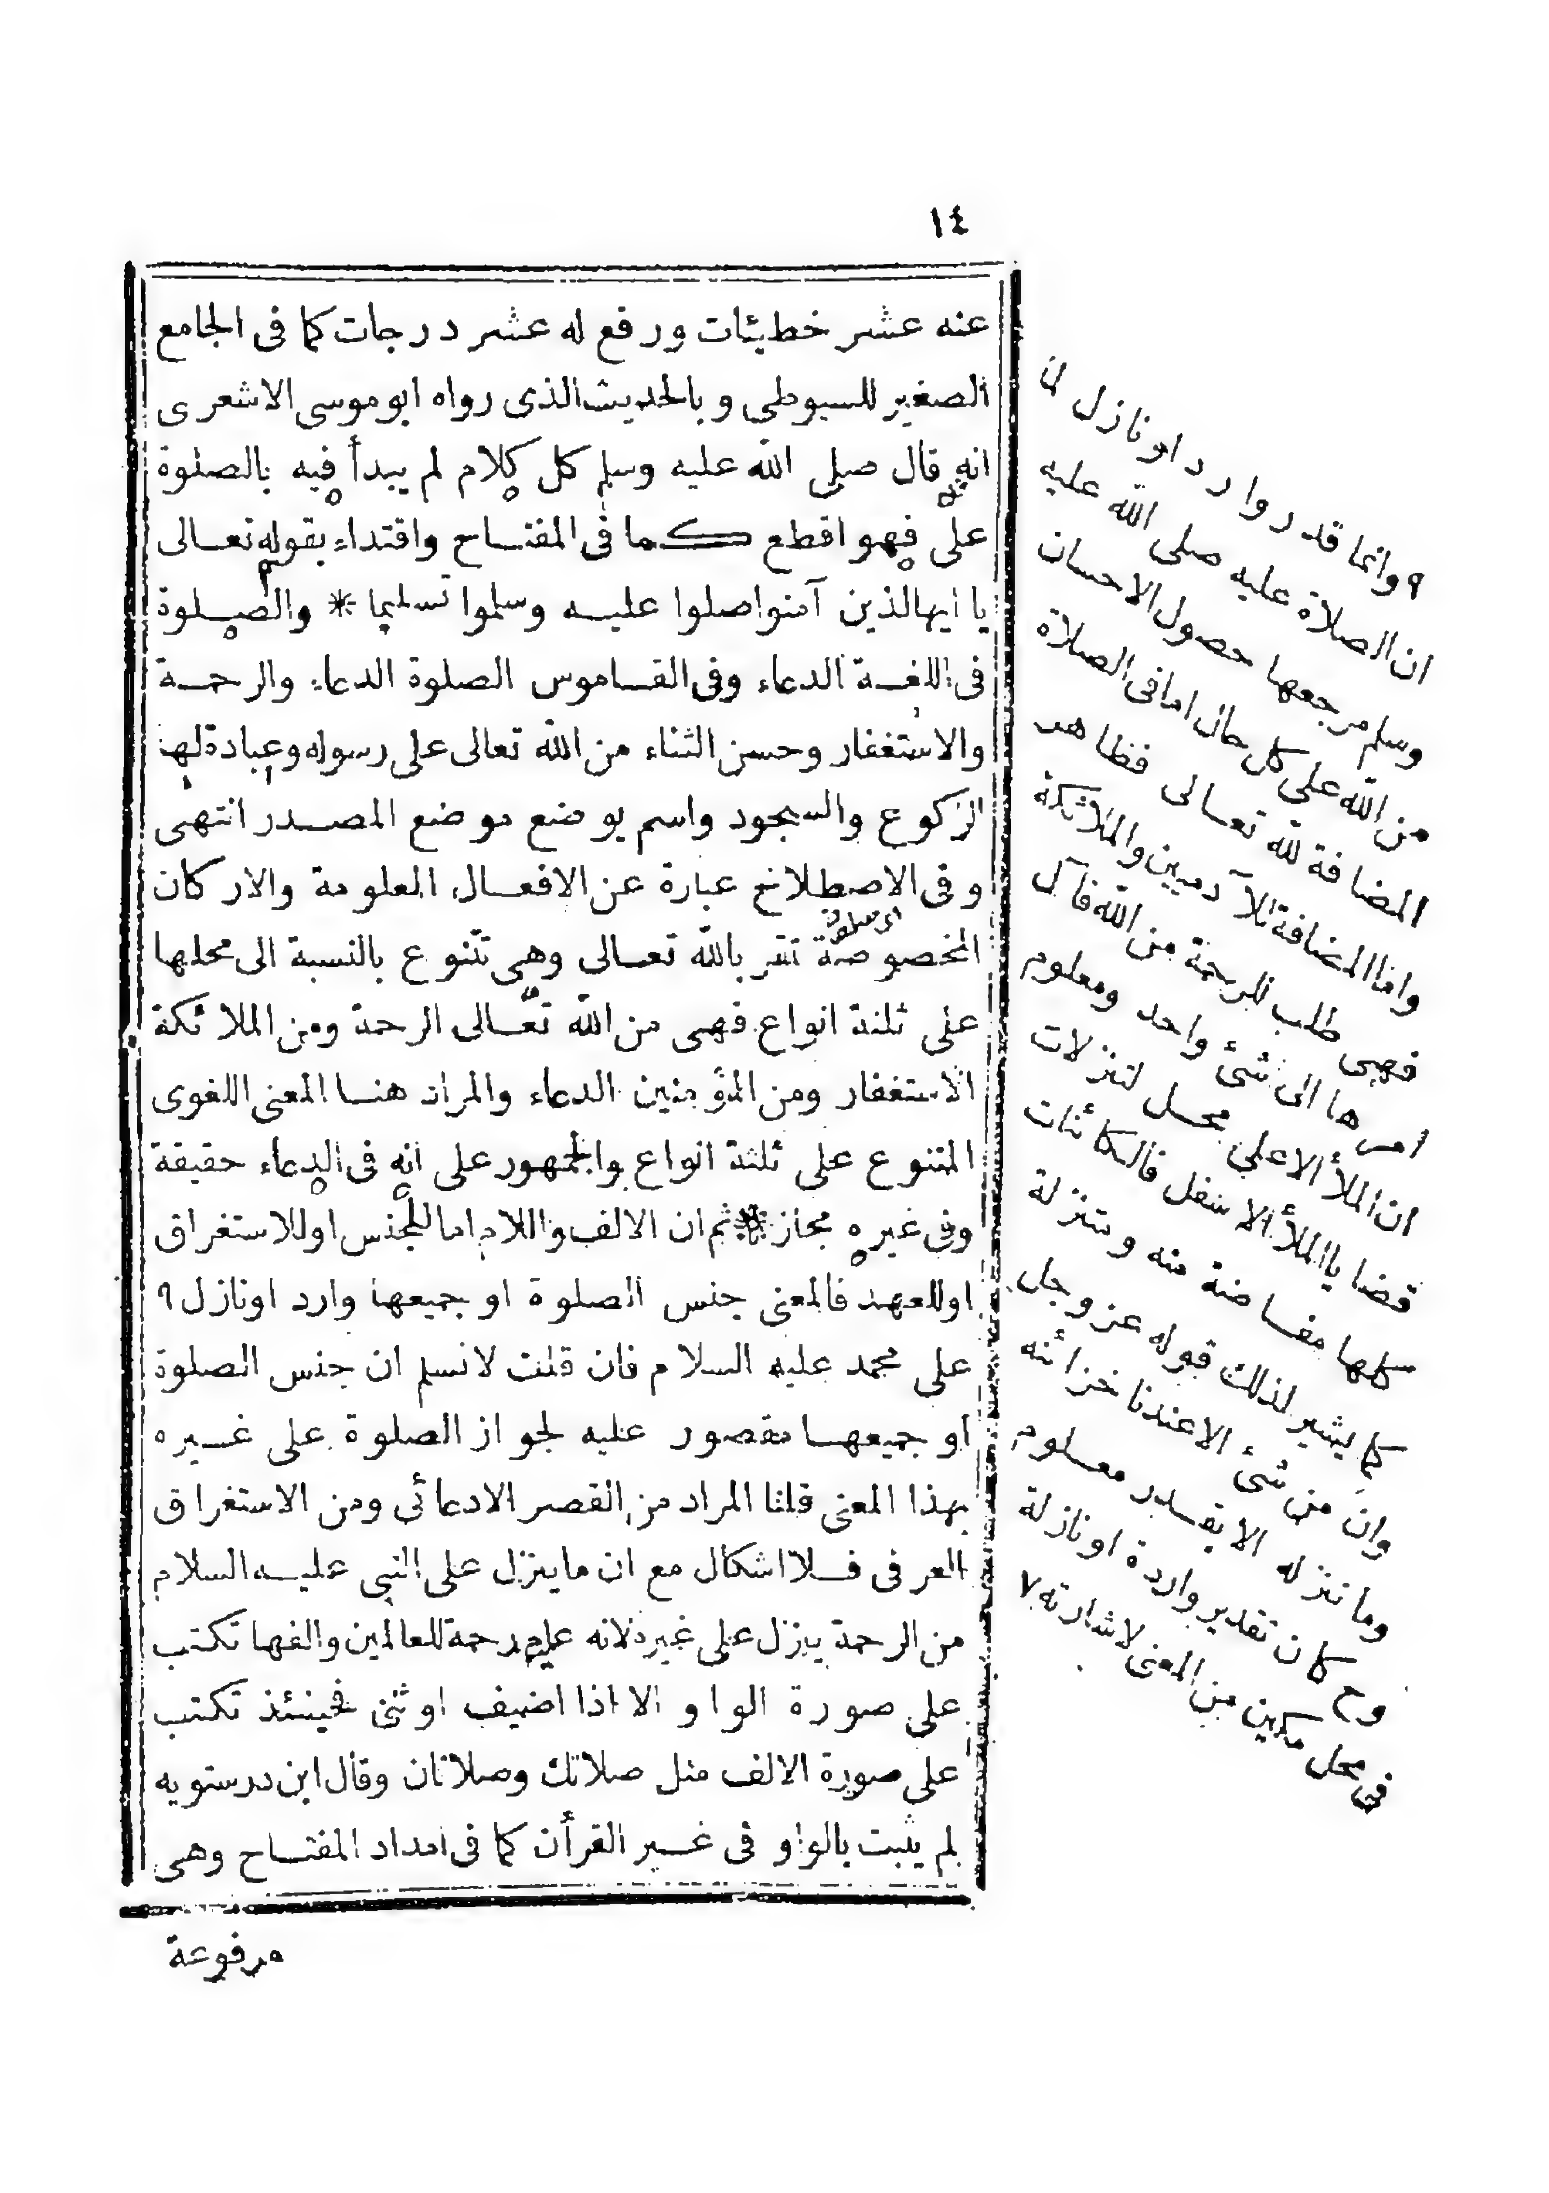 ١٤
عنه عشر خطيئات ورفع له عشر درجات كما فى الجامع
الصغير للسيوطى وبالحديث الذى رواه ابو موسى الاشعرى
انه قال صلى الله عليه وسلم كل كلام لم يبدأ فيه بالصلوة
على فهو اقطع كما فى المفتاح واقتداء بقوله تعالى
يا ايها الذين آمنوا صلوا عليه وسلموا تسليما * والصلوة
فى اللغة الدعاء وفى القاموس الصلوة الدعاء والرحمة
والاستغفار وحسن الثناء من الله تعالى على رسوله وعبادة لها
الركوع والسجود واسم يوضع موضع المصدر انتهى
وفى الاصطلاح عبارة عن الافعال المعلومة والاركان
المخصوصة تقر بالله تعالى وهى تتنوع بالنسبة الى محلها
اى صلوة
على ثلثة انواع فهى من الله تعالى الرحمة ومن الملائكة
الاستغفار ومن المؤمنين الدعاء والمراد هنا المعنى اللغوى
المتنوع على ثلثة انواع والجمهور على انه فى الدعاء حقيقة
وفى غيره مجاز * ثم ان الالف واللام اما للجنس او للاستغراق
او للعهد فالمعنى جنس الصلوة او جميعها وارد او نازل ٩
على محمد عليه السلام فان قلت لا نسلم ان جنس الصلوة
او جميعها مقصور عليه لجواز الصلوة على غيره
بهذا المعنى قلنا المراد من القصر الادعائى ومن الاستغراق
العرفى فلا اشكال مع ان ما ينزل على النبى عليه السلام
من الرحمة ينزل على غيره لانه عليم رحمة للعالمين والفها تكتب
على صورة الواو الا اذا اضيف او ثنى فحينئذ تكتب
على صورة الالف مثل صلاتك وصلاتان وقال ابن درستويه
لم يثبت بالواو فى غير القرأن كما فى امداد المفتاح وهى
مرفوعة
٩ وانما قدر وارد او نازل لان
ان الصلاة عليه صلى الله عليه
وسلم مرجعها حصول الاحسان
من الله على كل حال اما فى الصلاة
المضافة لله تعالى فظاهر
واما المضافة للآدميين والملائكة
فهى طلب للرحمة من الله فآل
امرها الى شئ واحد ومعلوم
ان الملأ الاعلى محل لتنزلات
قضايا الملأ الاسفل فالكائنات
كلها مفاضة منه ومتنزلة
كما يشير لذلك قوله عز وجل
وان من شئ الا عندنا خزائنه
وما ننزله الا بقدر معلوم
وح كان تقدير واردة او نازلة
فى محل مكين من المعنى لاشارته ٧